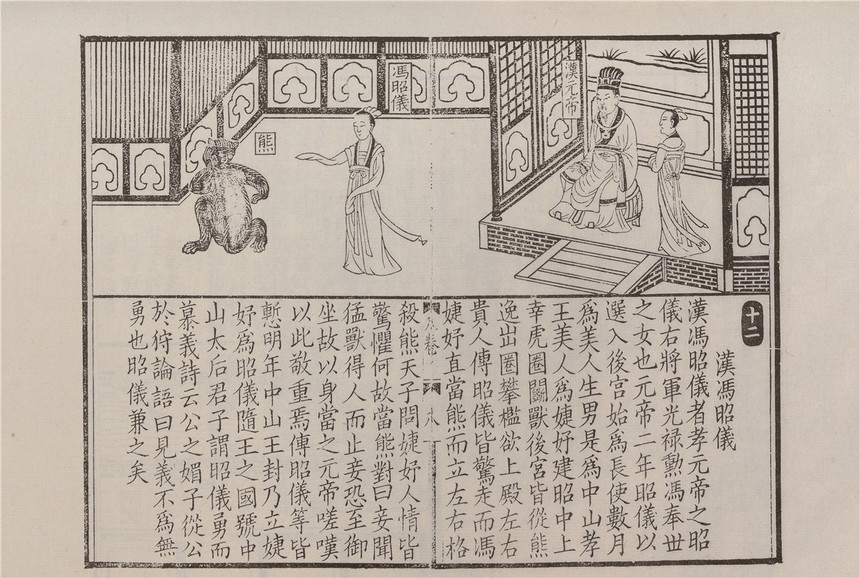 漢元帝
馮昭儀
熊
十二
漢馮昭儀
漢馮昭儀者孝元帝之昭
儀右將軍光禄勲馮奉世
之女也元帝二年昭儀以
選入後宮始爲長使數月
爲美人生男是爲中山孝
王美人爲婕妤建昭中上
幸虎圈鬭獸後宮皆從熊
逸出圈攀檻欲上殿左右
貴人傅昭儀皆驚走而馮
婕妤直當熊而立左右格
殺熊天子問婕妤人情皆
驚懼何故當熊對曰妾聞
猛獸得人而止妾恐至御
坐故以身當之元帝嗟嘆
以此敬重焉傅昭儀等皆
慙明年中山王封乃立婕
妤爲昭儀隨王之國號中
山太后君子謂昭儀勇而
慕義詩云公之媚子從公
於狩論語曰見義不爲無
勇也昭儀兼之矣